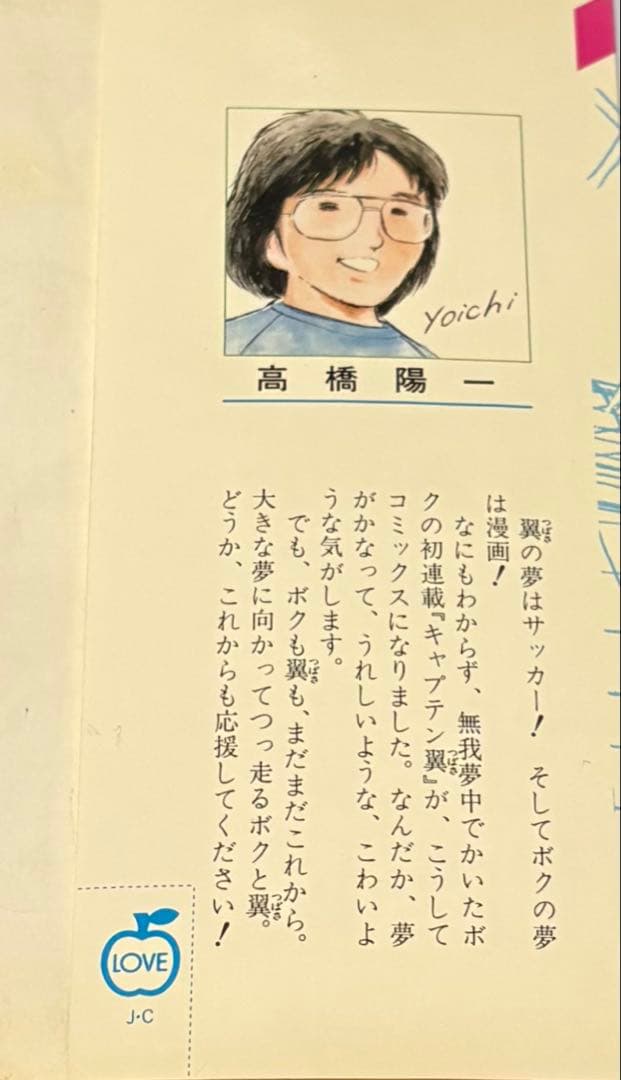 Yoichi
高橋陽一
翼の夢はサッカー！　そしてボクの夢
は漫画！
なにもわからず、無我夢中でかいたボ
クの初連載『キャプテン翼』が、こうして
コミックスになりました。なんだか、夢
がかなって、うれしいような、こわいよ
うな気がします。
でも、ボクも翼も、まだまだこれから。
大きな夢に向かってつっ走るボクと翼。
どうか、これからも応援してください！
LOVE
J・C